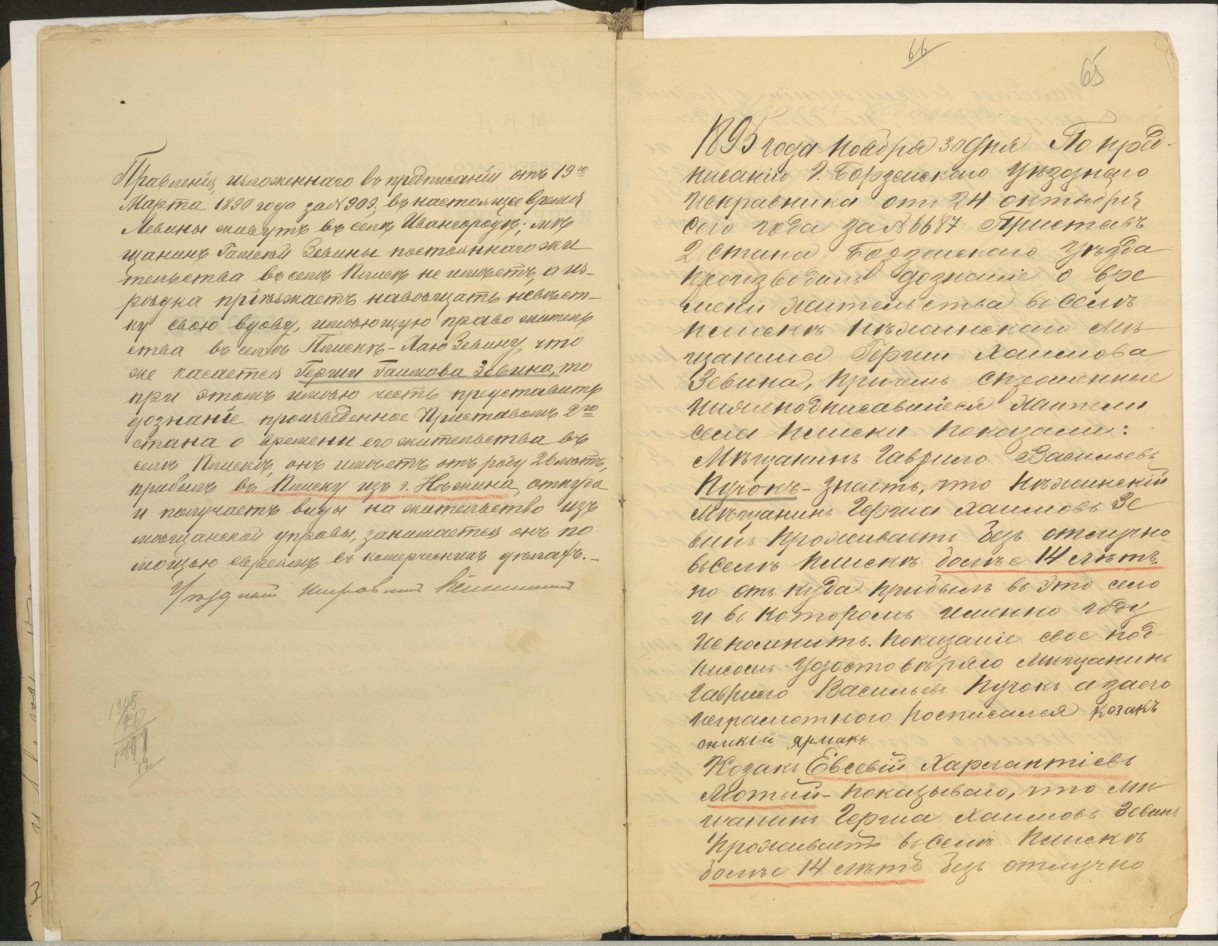 Правленія, изложеннаго въ предписаніи отъ 19го
Марта 1890 года за № 909, въ настоящее время
Левины живутъ въ селѣ Ивангородѣ; мѣ
щанинъ Зевинъ постояннаго жи
тельства въ селѣ Плискѣ не имѣетъ, а из-
рѣдка пріѣзжаетъ навѣщать невѣст-
ку свою вдову, имѣющую право житель
ства въ селѣ Плискѣ - Хаю Зевину, что
же касается Гершки Зевина, то
при этомъ имѣю честь представить
дознаніе произведенное Приставомъ 2го
стана о времени его жительства въ
селѣ Плискѣ, онъ имѣетъ отъ роду 26 лѣтъ,
прибылъ въ Плиску изъ г. Нѣжина, откуда
и получаетъ виды на жительство изъ
мѣщанской управы, занимается онъ по
мощью евреямъ въ комерческихъ дѣлахъ. -
Уѣздный Исправникъ
66
65
1895 года Ноября 30 дня По пред-
писанію Г. Борзенскаго Уѣзднаго
Исправника отъ 24 октября
сего года за № 6687 Приставъ
2 стана Борзенскаго Уѣзда
производилъ дознаніе о вре
мени жительства въ селѣ
Плискѣ Нѣжинскаго Мѣ-
щанина Гершки Хаимова
Зевина, причемъ спрошенные
нижеподписавшіеся жители
села Плиски показали:
Мѣщанинъ Гаврило Васильевъ
Кучокъ - знаетъ, что Нѣжинскій
Мѣщанинъ Гершка Хаимовъ Зе
винъ проживаетъ безъ отлучно
въ селѣ Плискѣ болѣе 14 лѣтъ
но откуда прибылъ въ это село
и въ которомъ именно году
непомнитъ. Показаніе свое под-
писомъ удостовѣряю Мѣщанинъ
Гаврило Васильевъ Кучокъ а за его
неграмотного росписался козакъ
оникій ярмакъ
Козакъ Евсевій Харлантіевъ
Мотый - показываю, что мѣ
щанинъ Гершка Хаимовъ Зевинъ
проживаетъ въ селѣ Плискѣ
болѣе 14 лѣтъ безъ отлучно